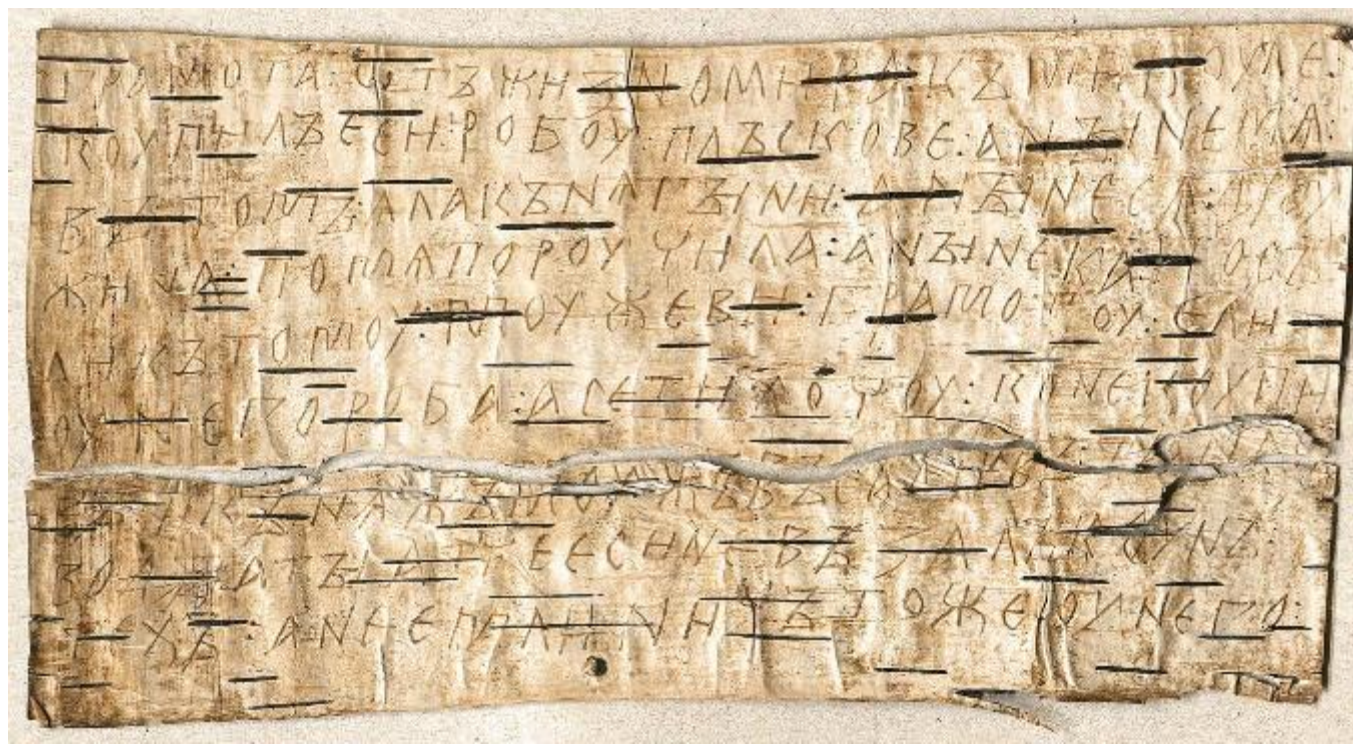 грамота:ѡтъжизномира:къмикоуле:
коупилъеси:робоу:плъскове:анꙑнемѧ:
въ томъ:ѧлакънѧгꙑни:анꙑнесѧ:дроу
жина:помѧпороучила:анꙑнека:посъ
ликътомоу:моужеви:грамотоу:ели
оунегороба:асетихочоу:конекоупи
въ:икънѧжъмоужъвъсадивъ:танасъ
водꙑ:атꙑатчееси не възалъкоунъ:
техъ:анеемлиничътожеоунего: